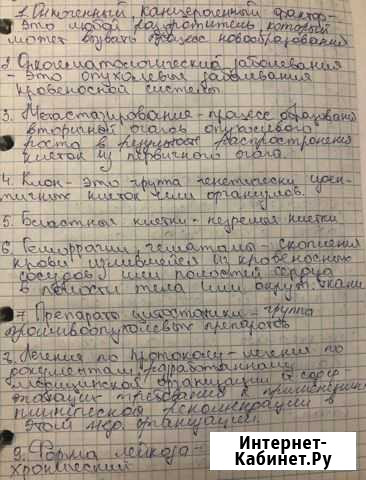 1. Онкогенный канцерогенный фактор -
это любой который
может вызвать процесс новообразования
2. Онкогематологический заболевания
- это опухолевые заболевания
кровеносной системы
3. Метастазирование - процесс образования
вторичных очагов опухолевого
роста в результате распространения
клеток из первичного очага.
4. Клон - это группа генетически иден-
тичных клеток или организмов.
5. Бластные клетки - незрелые клетки
6. Геморрагии, гематомы - скопления
крови излившейся из кровеносных
сосудов или полостей сердца
в полости тела или окруж. ткани
7. Препараты цитостатики - группа
противоопухолевых препаратов
Лечения по протоколу - лечения по
документам, разработанному
медицинской организации и содер-
жащих требования к применению
клинической рекомендации в
этой мед. организации.
9. Форма лейкоза -
хронический
Интернет-
Кабинет.Ру